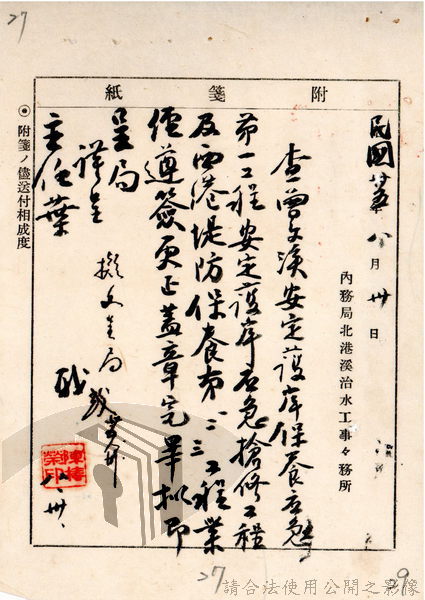 27
附箋紙
民國卅五年八月卅日
內務局北港溪治水工事々務所
查曾文溪安定護岸保養
第一工程安定護岸應急搶修工程
及西港堤防保養第一二三工程業
經遵簽更正蓋章完畢擬即
呈局
祥呈
主任葉
擬文呈局
八、卅、
◉附箋ノ儘送付相成度
27
29
請合法使用公開之影像